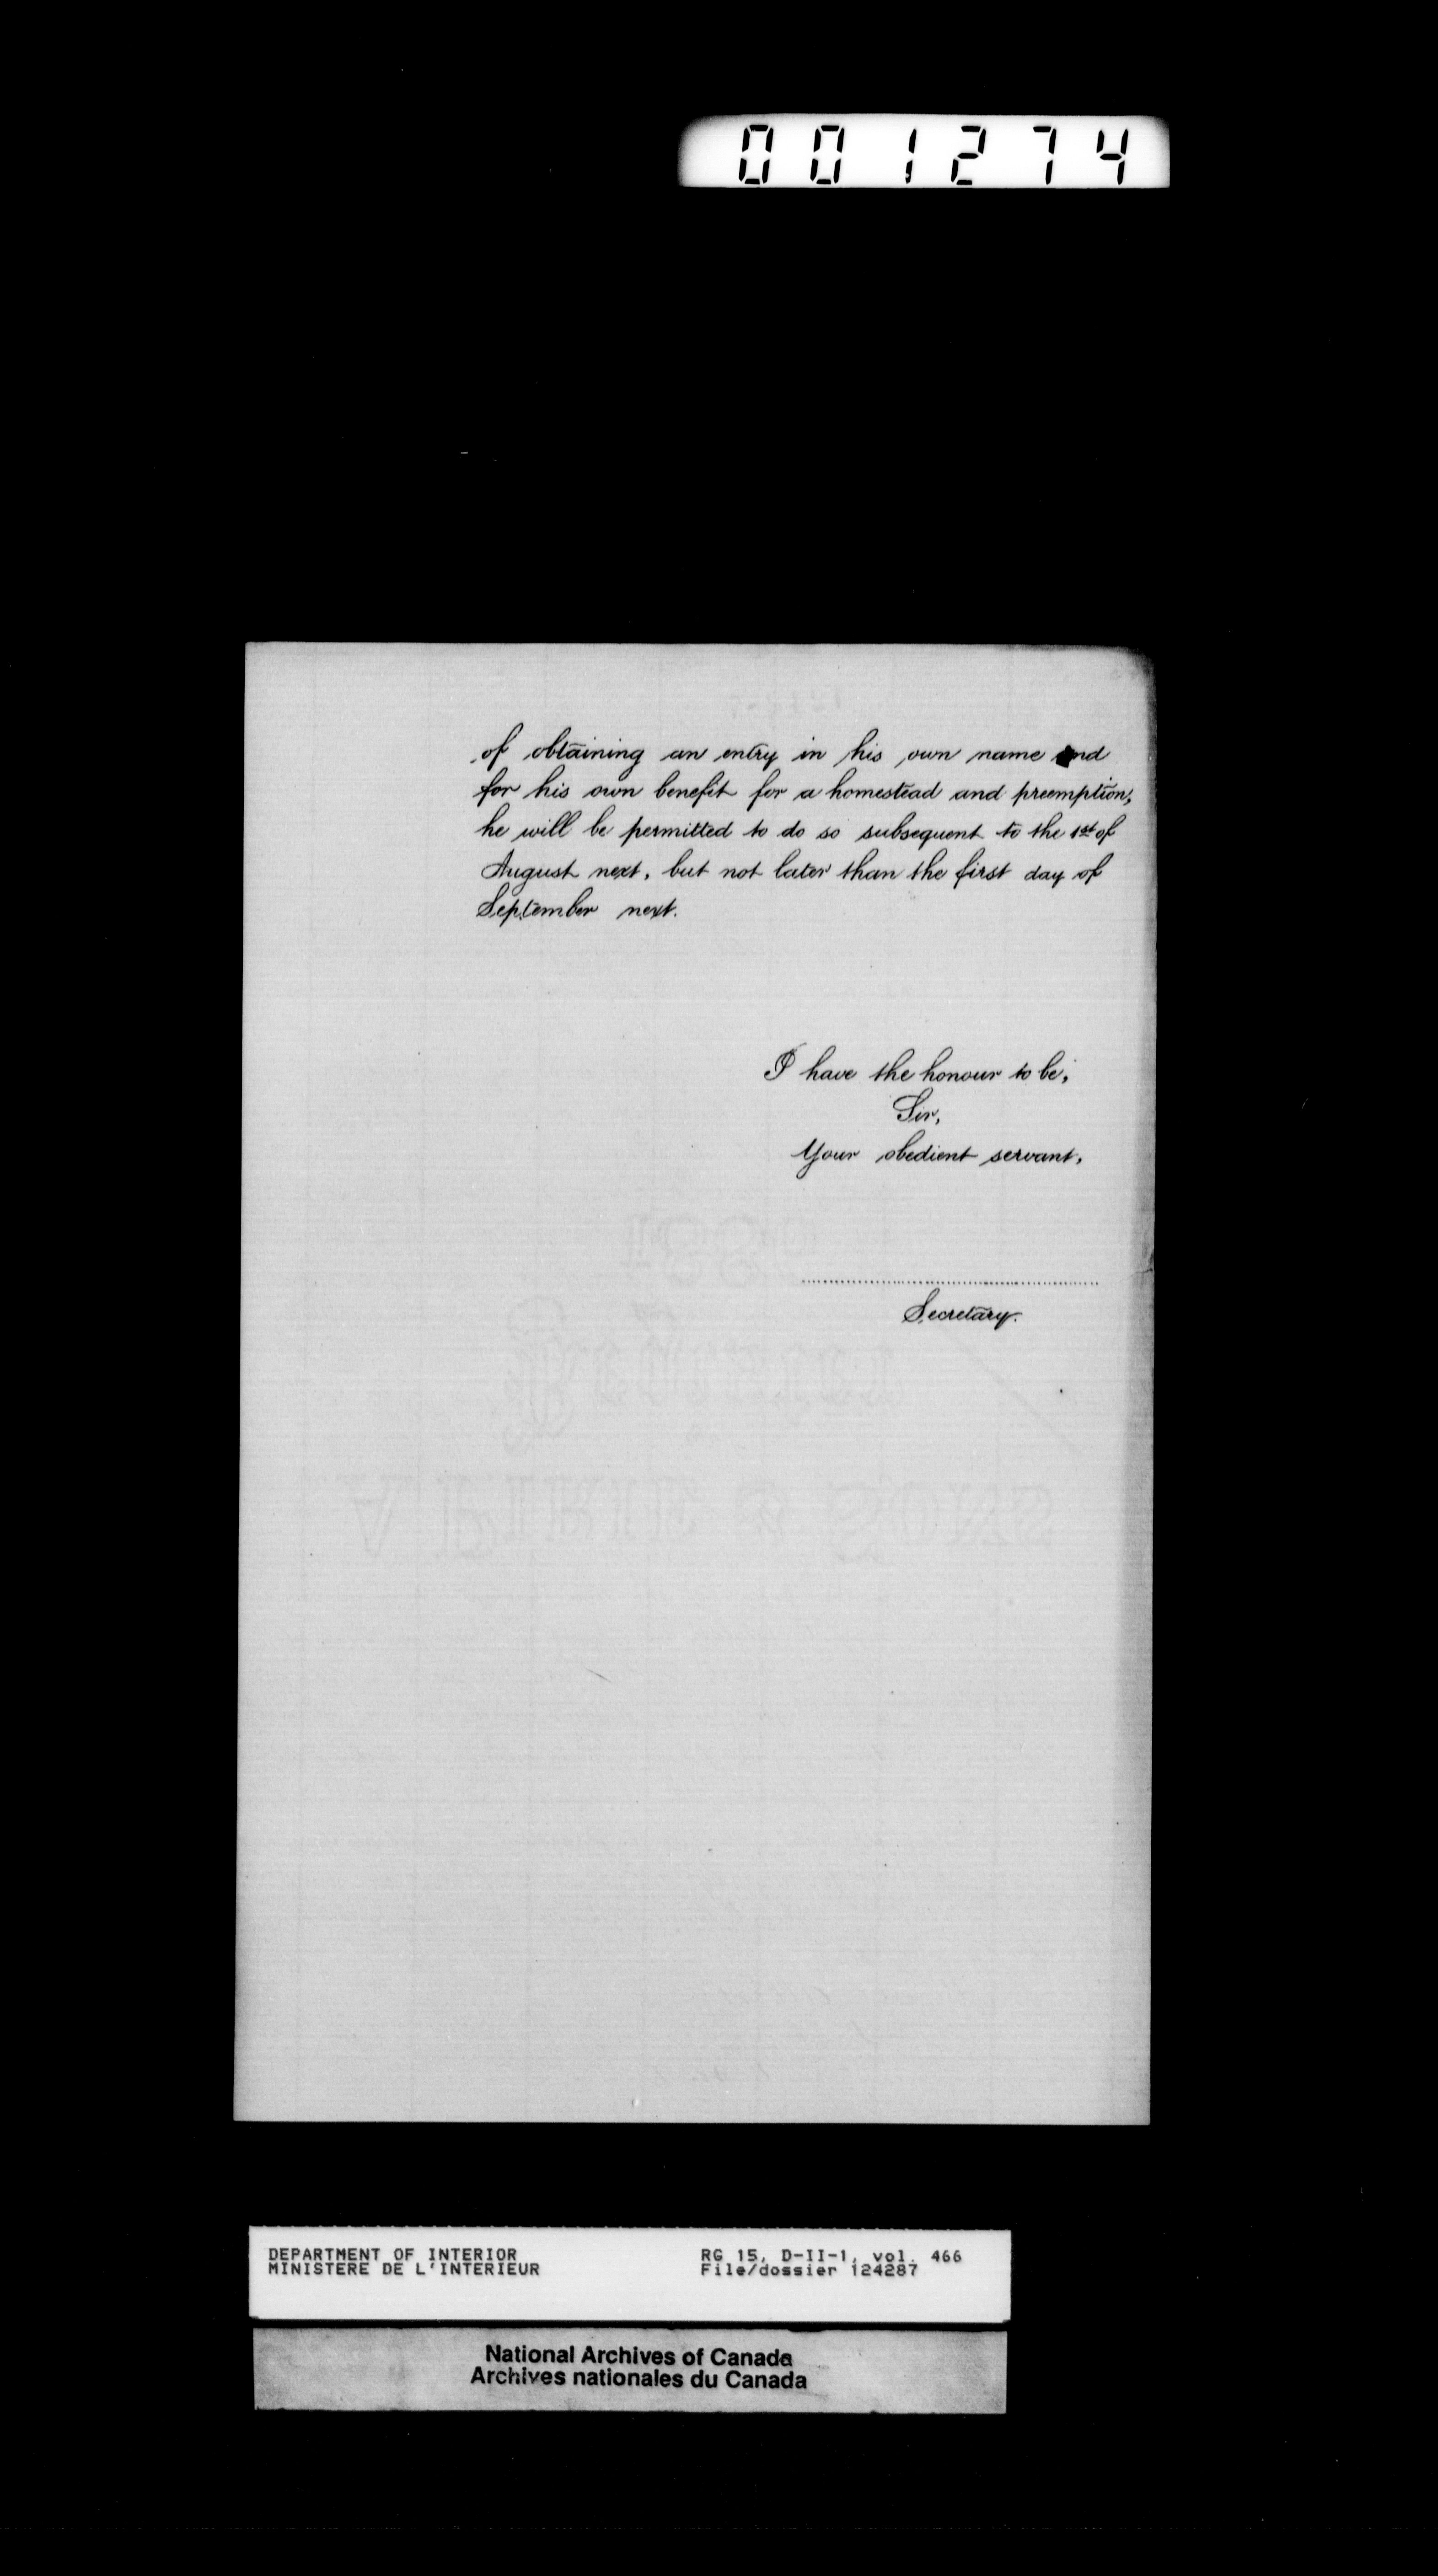 001274
of obtaining an entry in his own name and
for his own benefit for a homestead and preemption,
he will be permitted to do so subsequent to the 1st of
August next, but not later than the first day of
September next.
I have the honour to be,
Sir,
Your obedient servant,
Secretary.
A PIRIE & SONS
DEPARTMENT OF INTERIOR
MINISTERE DE L'INTERIEUR
RG 15, D-II-1, vol. 466
File/dossier 124287
National Archives of Canada
Archives nationales du Canada